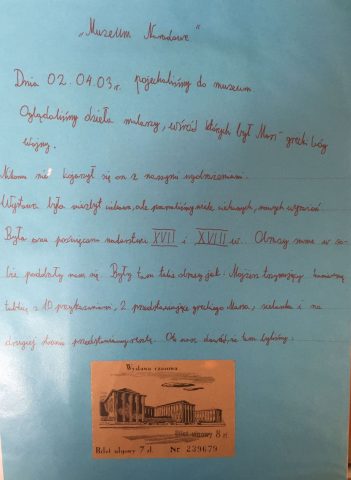 „Muzeum Narodowe"
Dnia 02.04.03r. pojechaliśmy do muzeum.
Oglądaliśmy dzieła malarzy, wśród których był Mars - grecki bóg
wojny.
Nikomu nie kojarzył się on z naszymi wyobrażeniami.
Wystawa była niezbyt ciekawa, ale poznaliśmy wiele ciekawych, nowych
Była ona poświęcona malarstwu XVII i XVIII w. Obrazy same w so-
bie podobały nam się. Były tam takie obrazy jak: Mojżesz trzymający kamienną
tablicę z 10 przykazaniami, 2 przedstawiające greckiego Marsa, i na
drugiej stronie przedstawiamy resztę. Oto nasz dowód, że tam byliśmy:
Wystawa czasowa
Bilet ulgowy 8 zł
Bilet ulgowy 7 zł. Nr 239679